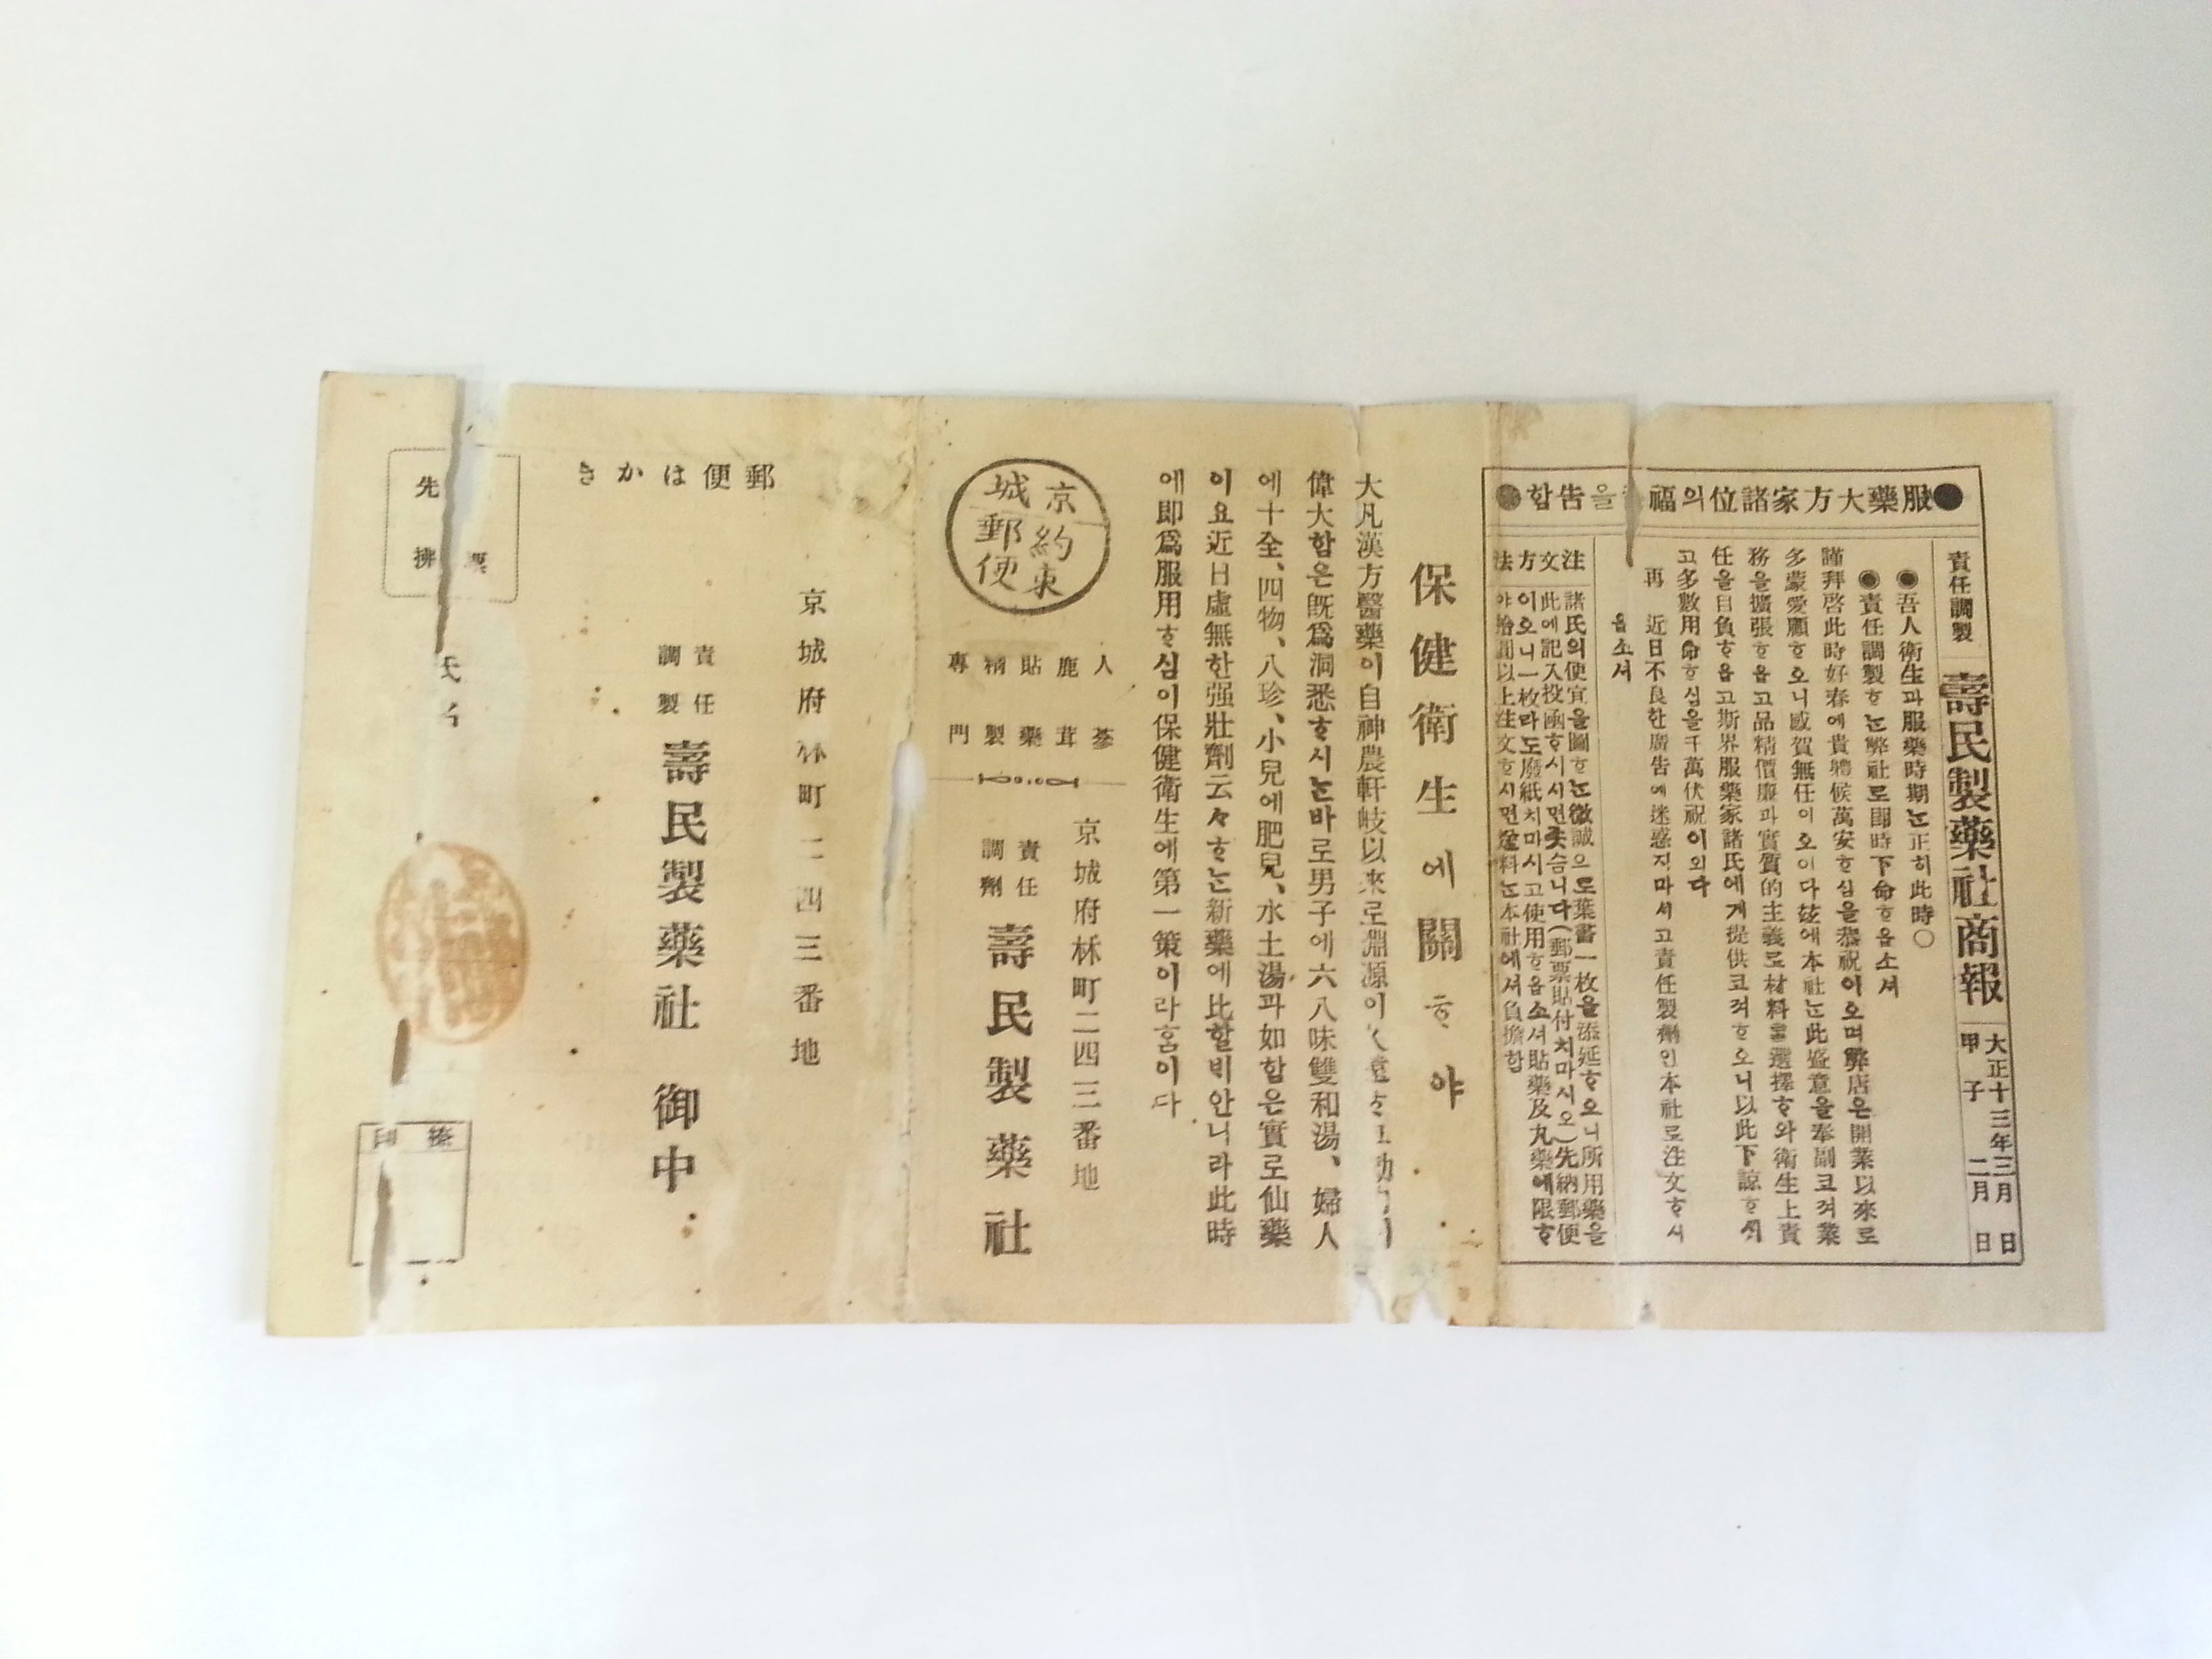 ●服藥大方家諸位의福을告함●
責任調製
壽民製藥社商報
大正十三年三月 日
甲子 二月 日
◉吾人衛生과服藥時期는正히此時○
◉責任調製ᄒᆞ는弊社로卽時下命ᄒᆞ옵소셔
謹拜啓此時好春에貴軆候萬安ᄒᆞ심을恭祝이오며弊店은開業以來로
多蒙愛顧ᄒᆞ오니感賀無任이오이다玆에本社는此盛意을奉副코져業
務을擴張ᄒᆞ옵고品精價廉과實質的主義로材料를選擇ᄒᆞ와衛生上責
任을自負ᄒᆞ옵고斯界服藥家諸氏에게提供코져ᄒᆞ오니以此下諒ᄒᆞ시
고多數用命ᄒᆞ심을千萬伏祝이외다
再 近日不良한廣告에迷惑지마셔고責任製劑인本社로注文ᄒᆞ시
옵소셔
注文方法
諸氏의便宜을圖ᄒᆞ는微誠으로葉書一枚을添延ᄒᆞ오니所用藥을
此에記入投函ᄒᆞ시시면돗슴니다(郵票貼付치마시오)先納郵便
이오니一枚라도廢紙치마시고使用ᄒᆞ옵소셔貼藥及丸藥에限ᄒᆞ
야拾圓以上注文ᄒᆞ시면送料는本社에셔負擔함
保健衛生에關ᄒᆞ야
大凡漢方醫藥이自神農軒岐以來로淵源이久遠ᄒᆞ고
偉大함은旣爲洞悉ᄒᆞ시는바로男子에六八味雙和湯、婦人
에十全、四物、八珍、小兒에肥兒、水土湯과如함은實로仙藥
이요近日虛無한强壯劑云々ᄒᆞ는新藥에比할비안니라此時
에卽爲服用ᄒᆞ심이保健衛生에第一策이라홈이다
京城郵便
約束
人蔘鹿茸貼藥精製專門
京城府林町二四三番地
責任調劑
壽民製藥社
郵便はかき
京城府林町二四三番地
責任調製
壽民製藥社 御中
先拂票
氏名